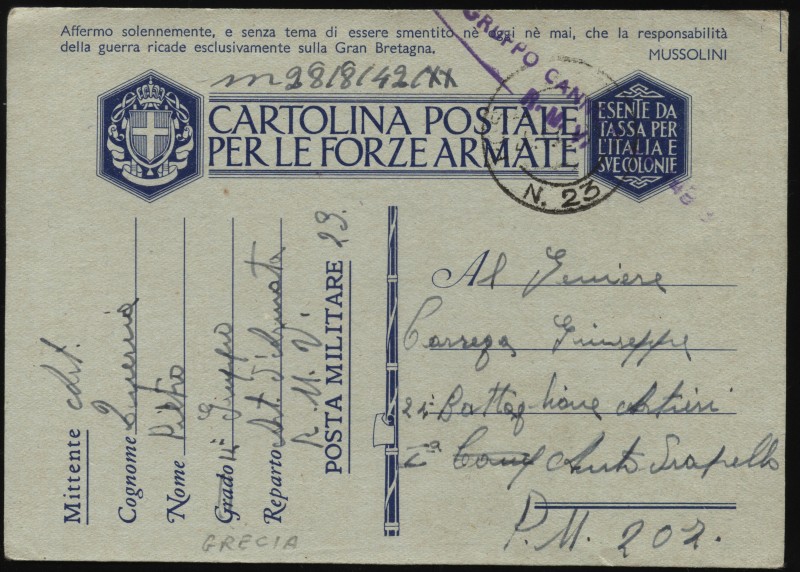 Affermo solennemente, e senza tema di essere smentito nè oggi nè mai, che la responsabilità
della guerra ricade esclusivamente sulla Gran Bretagna.
MUSSOLINI
28/8/42/XX
GRUPPO CANN
N. 23
CARTOLINA POSTALE
PER LE FORZE ARMATE
ESENTE DA
TASSA PER
L'ITALIA E
SVE COLONIE
Mittente Art.
Cognome
Nome Pietro
Grado Gruppo
Reparto Art. d'Armata
R. M. V.
POSTA MILITARE 23.
GRECIA
Al Geniere
Carrega Giuseppe
Battaglione Artieri
P.M. 202.